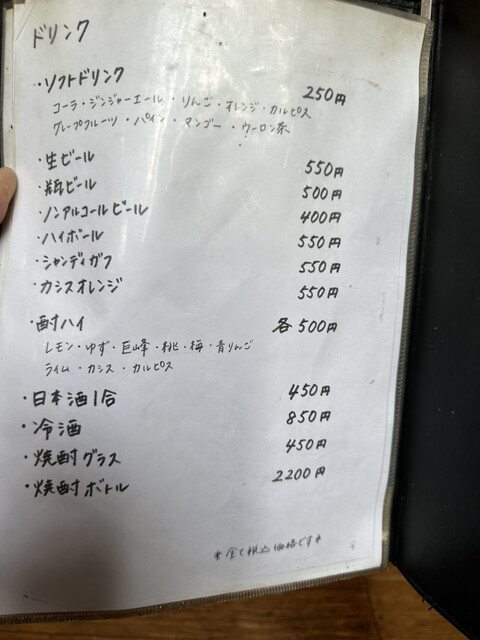 ドリンク
・ソフトドリンク 250円
コーラ・ジンジャーエール・りんご・オレンジ・カルピス
グレープフルーツ・パイン・マンゴー・ウーロン茶
・生ビール 550円
・瓶ビール 500円
・ノンアルコールビール 400円
・ハイボール 550円
・シャンディガフ 550円
・カシスオレンジ 550円
・酎ハイ 各500円
レモン・ゆず・巨峰・桃・梅・青りんご
ライム・カシス・カルピス
・日本酒1合 450円
・冷酒 850円
・焼酎グラス 450円
・焼酎ボトル 2200円
*全て税込価格です*